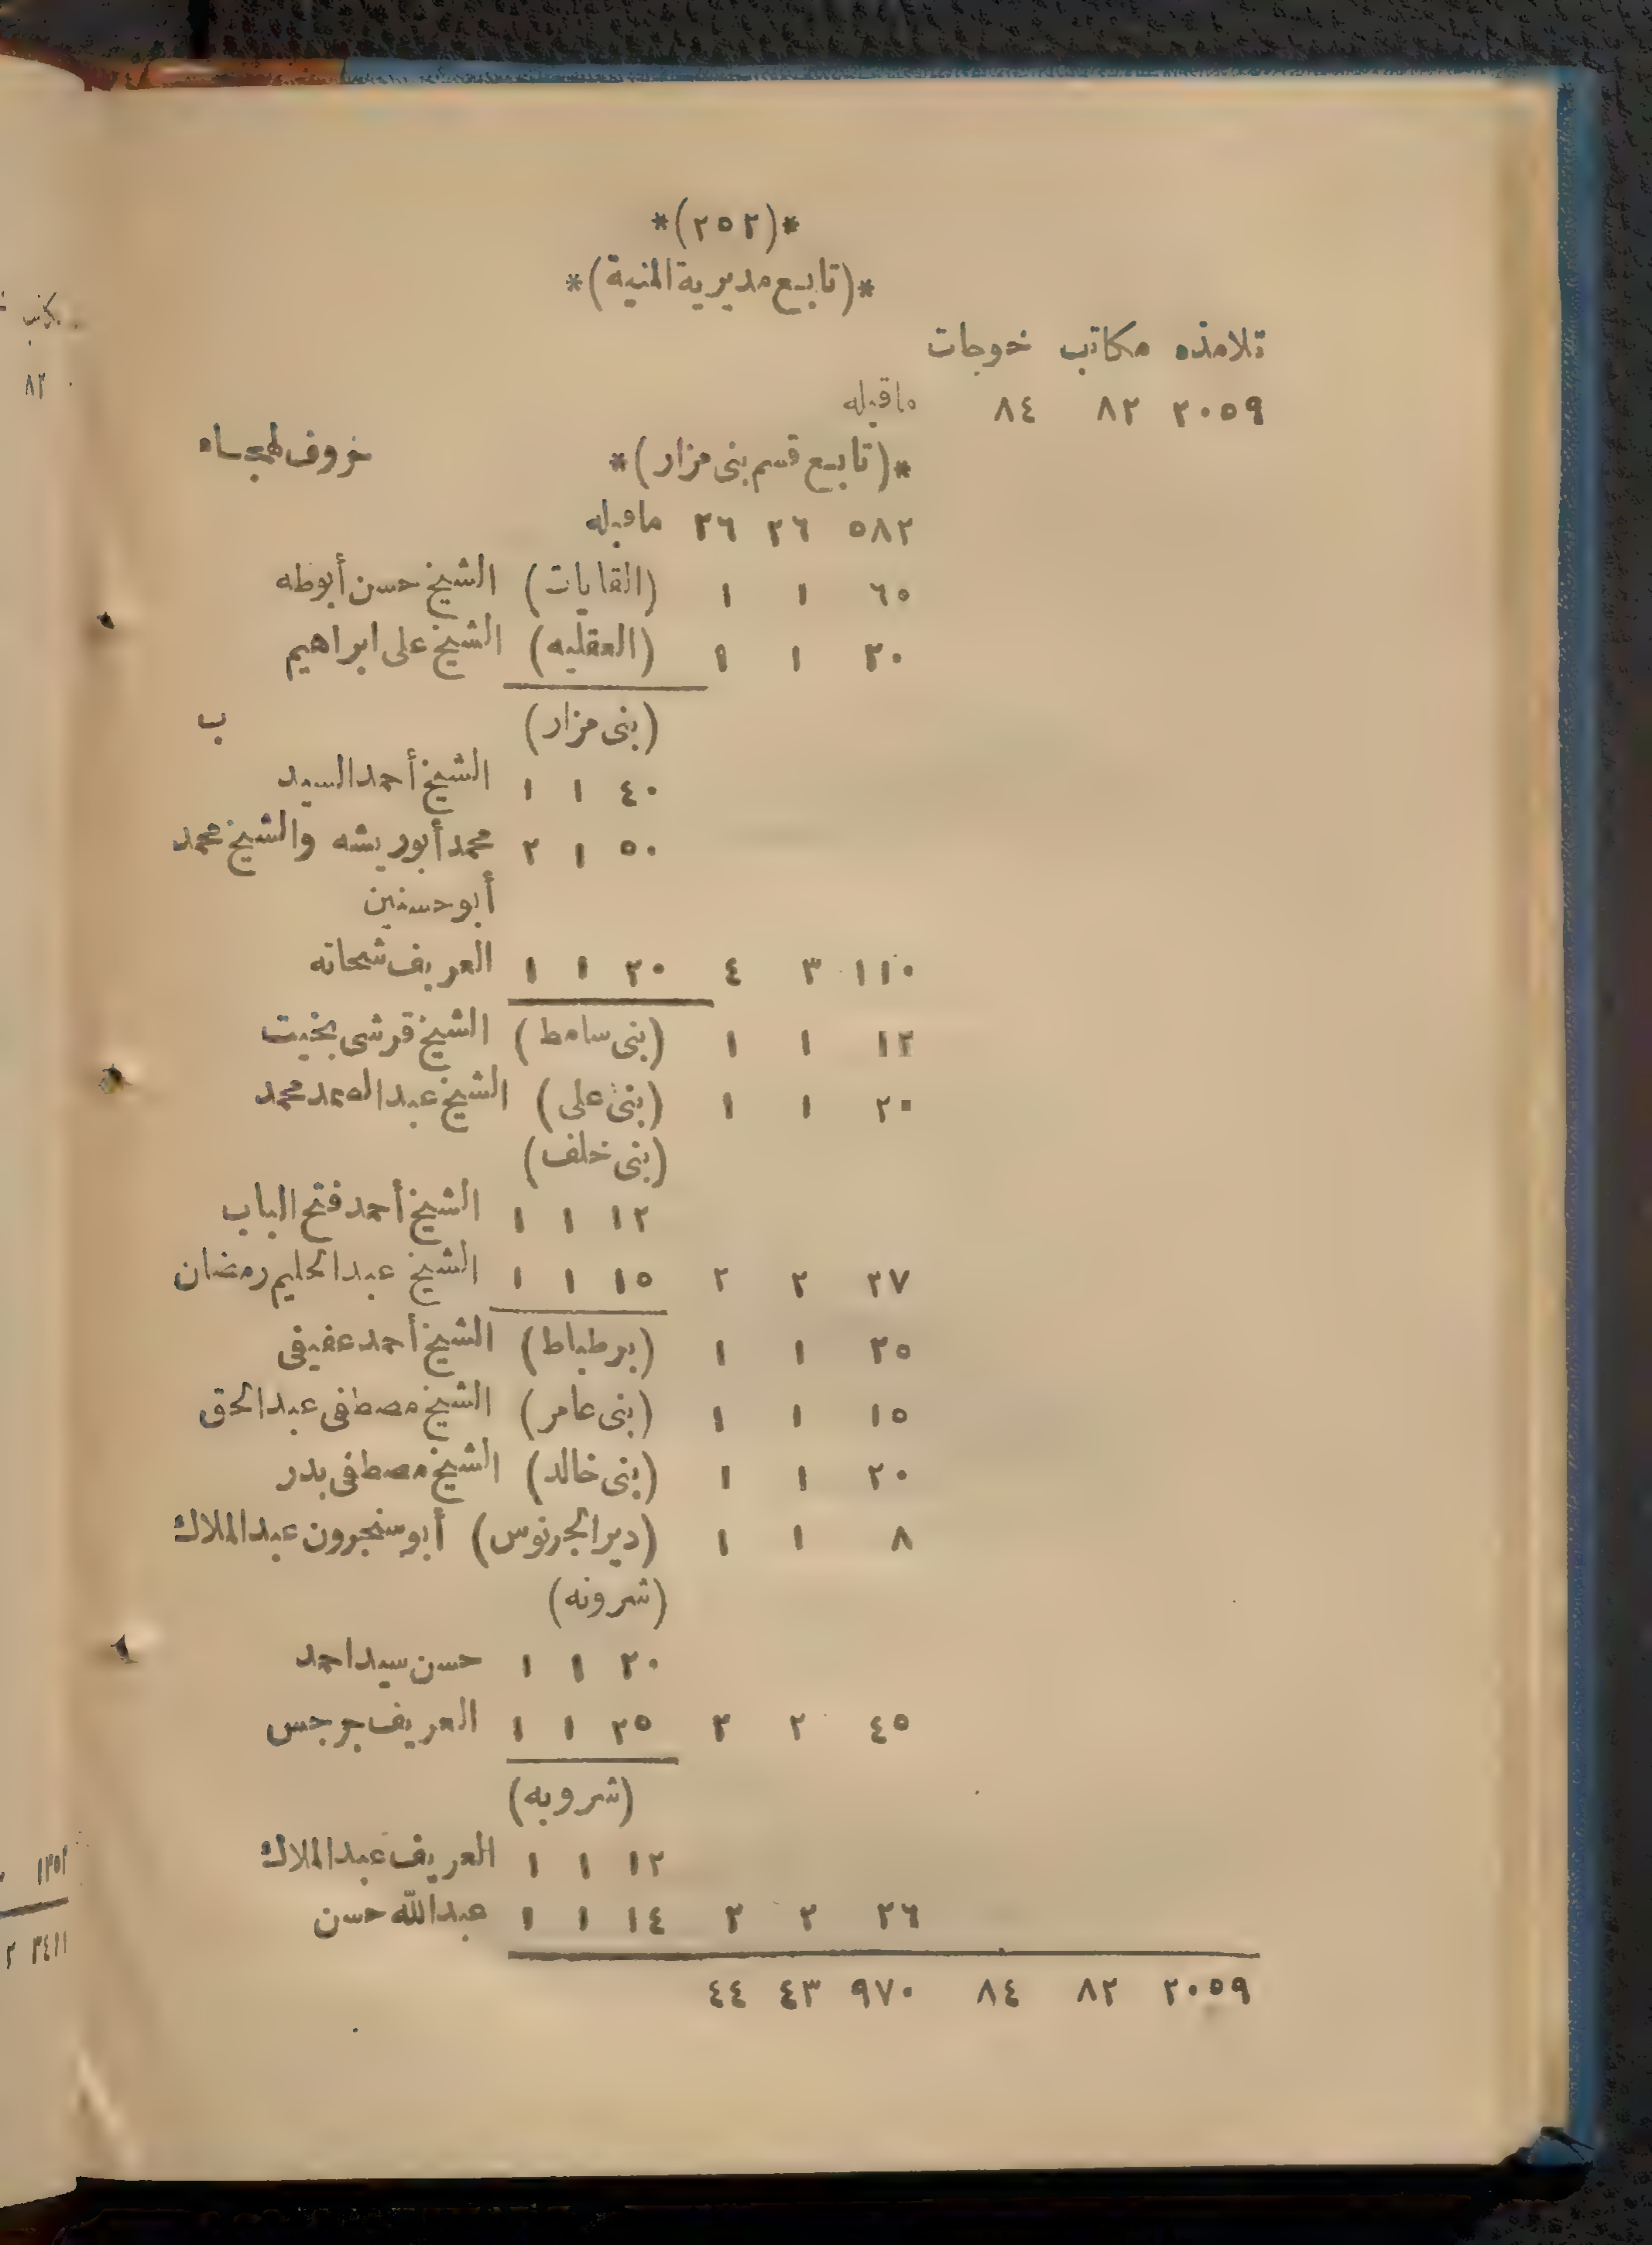 *(٢٥٢)*
*(تابع مديرية المنية)*
تلامذه مكاتب خوجات
٢٠٥٩ ٨٢ ٨٤ ماقبله
*(تابع قسم بنى مزار)*
٥٨٢ ٢٦ ٢٦ ماقبله
٦٠ ١ ١ (القايات) الشيخ حسن أبوطه
٢٠ ١ ١ (العقليه) الشيخ على ابراهيم
(بنى مزار) ب
٤٠ ١ ١ الشيخ أحمد السيد
٥٠ ١ ٢ محمد أبوريشه والشيخ محمد
أبوحسنين
١١٠ ٣ ٤ ٢٠ ١ ١ العريف شحاته
١٢ ١ ١ (بنى سامط) الشيخ قرشى بخيت
٢٠ ١ ١ (بنى على) الشيخ محمد
(بنى خلف)
١٢ ١ ١ الشيخ أحمد فتح الباب
٢٧ ٢ ٢ ١٥ ١ ١ الشيخ عبدالحليم رمضان
٢٥ ١ ١ (برطباط) الشيخ أحمد عفيفى
١٥ ١ ١ (بنى عامر) الشيخ مصطفى عبدالحق
٢٠ ١ ١ (بنى خالد) الشيخ مصطفى بدر
٨ ١ ١ (ديرالجرنوس) أبوسنجرون عبدالملاك
(شرونه)
٢٠ ١ ١ حسن سيداحمد
٤٥ ٢ ٢ ٢٥ ١ ١ العريف جرجس
(شرويه)
١٢ ١ ١ العريف عبدالملاك
٢٦ ٢ ٢ ١٤ ١ ١ عبدالله حسن
٢٠٥٩ ٨٢ ٨٤ ٩٧٠ ٤٣ ٤٤